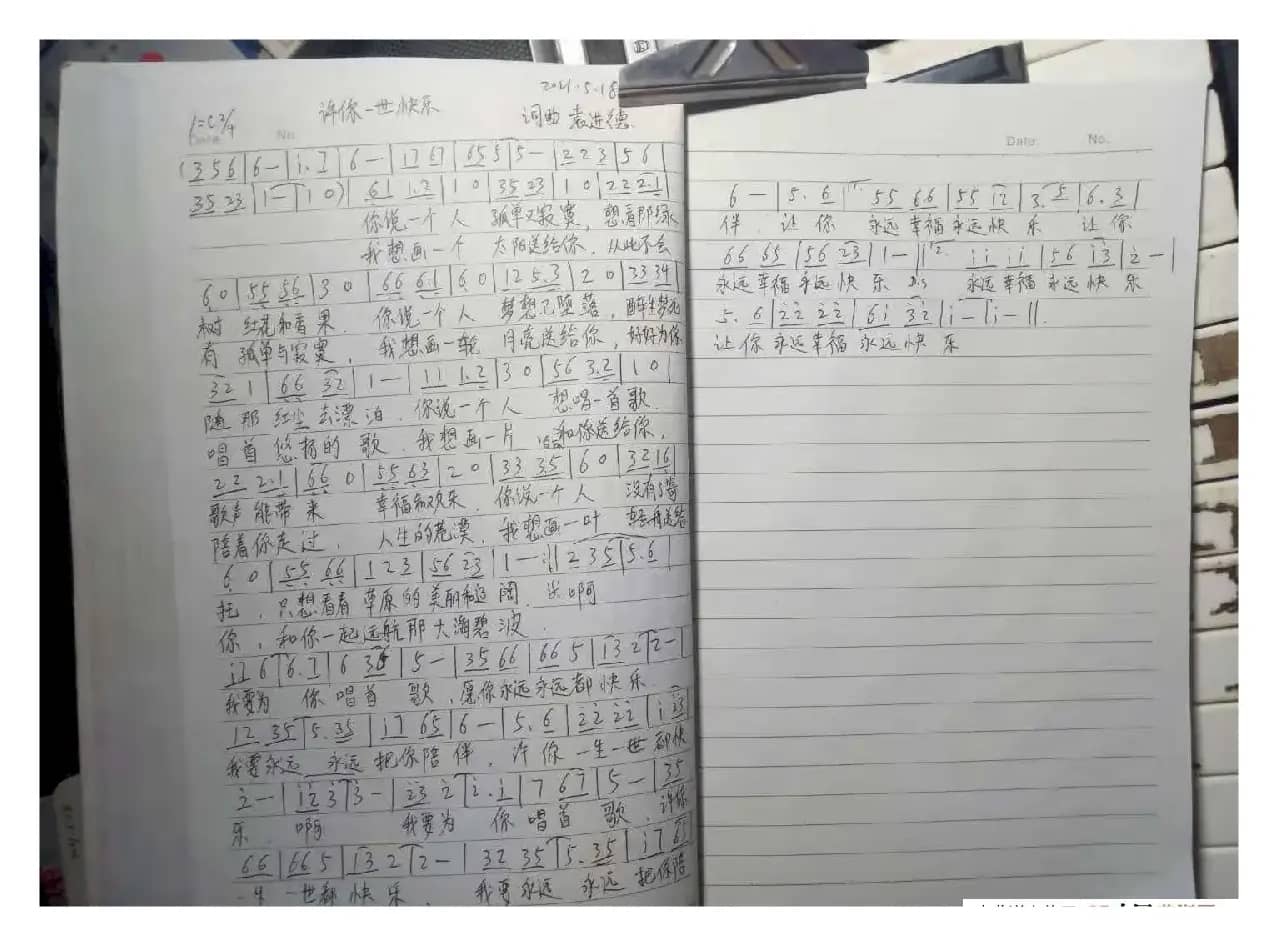 2021.5.18
许你一世快乐
1=C 2/4
词曲 袁进德
Date No
(3 5 6 | 6 - | i. 7 | 6 - | i7 67 | 65 5 | 5 - | 2 2 3 | 5 6 |
35 23 | 1 - | 1 0) | 61 1.2 | 1 0 | 35 23 | 1 0 | 22 2.1 |
你说一个人 孤单又寂寞, 想看那绿
我想画一个 太阳送给你, 从此不会
6 0 | 55 56 | 3 0 | 66 61 | 6 0 | 12 5.3 | 2 0 | 33 34 |
树 红花和青果. 你说一个人 梦想已堕落, 醉生梦死
有 孤单与寂寞, 我想画一轮 月亮送给你, 好好为你
32 1 | 66 32 | 1 - | 11 1.2 | 3 0 | 56 3.2 | 1 0 |
随那红尘去漂泊. 你说一个人 想唱一首歌.
唱首悠扬的歌. 我想画一片 和你送给你,
22 2.1 | 66 0 | 55 63 | 2 0 | 33 3.5 | 6 0 | 32 16 |
歌声能带来 幸福和欢乐. 你说一个人 没有
陪着你走过, 人生的荒漠, 我想画一叶 送给
6 0 | 55 66 | 1 2 3 | 56 23 | 1 - :|| 2 3 5 | 5. 6 |
托, 只想看看草原的美丽和辽阔. 啊
你, 和你一起远航那大海碧波.
i7 6 | 6. 7 | 6 36 | 5 - | 35 66 | 66 5 | i3 2 | 2 - |
我要为 你唱首 歌, 愿你永远永远都快乐
12 35 | 5. 35 | i7 65 | 6 - | 5. 6 | 22 22 | i 23
我要永远 永远把你陪伴, 许你一生一世都快
2 - | i2 3 | 3 - | 23 2 | 2. i | 7 67 | 5 - | 35
乐. 啊 我要为 你唱首歌. 许你
66 | 66 5 | i3 2 | 2 - | 32 35 | 5. 35 | i7 6
一生 一世都快乐, 我要永远 永远把你陪
Date No.
6 - | 5. 6 | 1. 55 66 | 55 i2 | 3. 5 | 6. 3 |
伴. 让你 永远幸福永远快乐 让你
66 65 | 56 23 | 1 - || 2. ii i | 56 i3 | 2 - |
永远幸福永远快乐 D.S 永远幸福永远快乐
5. 6 | 22 22 | 6i 32 | i - | i - ||
让你永远幸福永远快乐